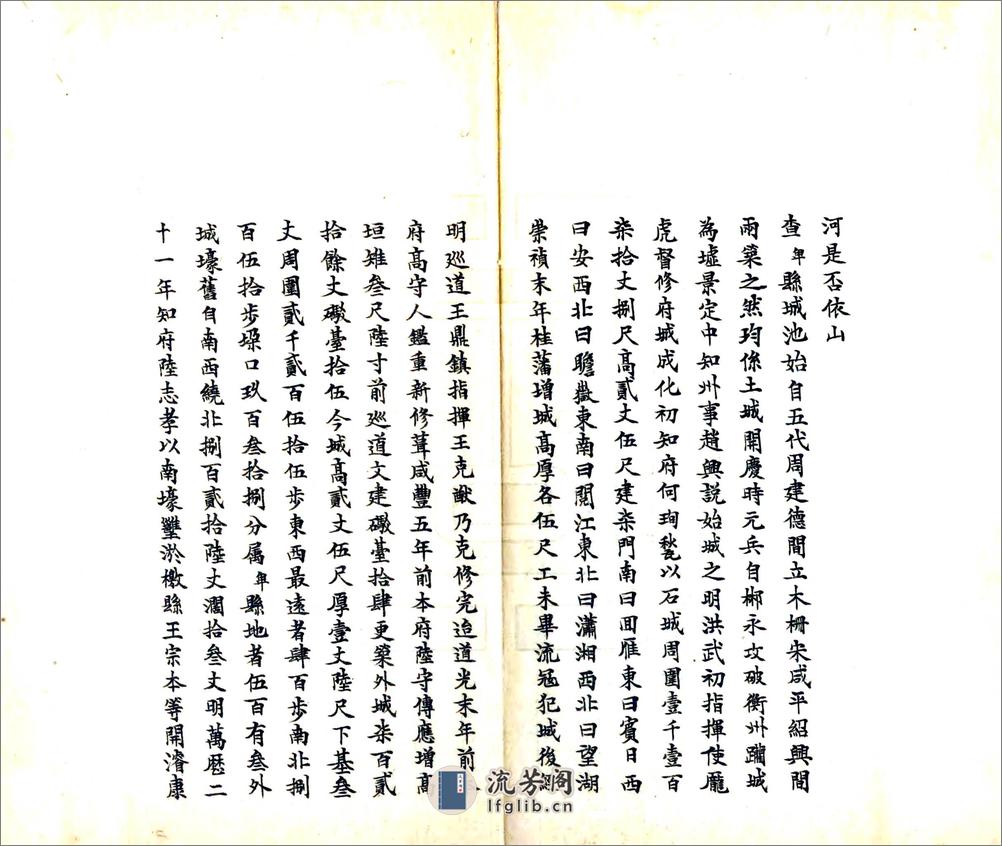 河是否依山
查卑縣城池始自五代周建德間立木柵宋咸平紹興間
兩築之然均係土城開慶時元兵自郴永攻破衡州蹦城
為墟景定中知州事趙興説始城之明洪武初指揮使龐
虎督修府城成化初知府何珣甃以石城周圍壹千壹百
柒拾丈捌尺高貳丈伍尺建柒門南曰回雁東曰賓日西
曰安西北曰瞻嶽東南曰閱江東北曰瀟湘西北曰望湖
崇禎末年桂藩增城高厚各伍尺工未畢流寇犯城後經
明巡道王鼎鎮指揮王克猷乃克修完迨道光末年前
府高守人鑑重新修葺咸豐五年前本府陸守傳應增高
垣雉叁尺陸寸前巡道文建礮臺拾肆更築外城柒百貳
拾餘丈礮臺拾伍今城高貳丈伍尺厚壹丈陸尺下基叁
丈周圍貳千貳百伍拾伍步東西最遠者肆百步南北捌
百伍拾步垜口玖百叁拾捌分属卑縣地者伍百有叁外
城壕舊自南西繞北捌百貳拾陸丈濶拾叁丈明萬歷二
十一年知府陸志孝以南壕壅淤檄縣王宗本等開濬康
流芳閣
lfglib.cn